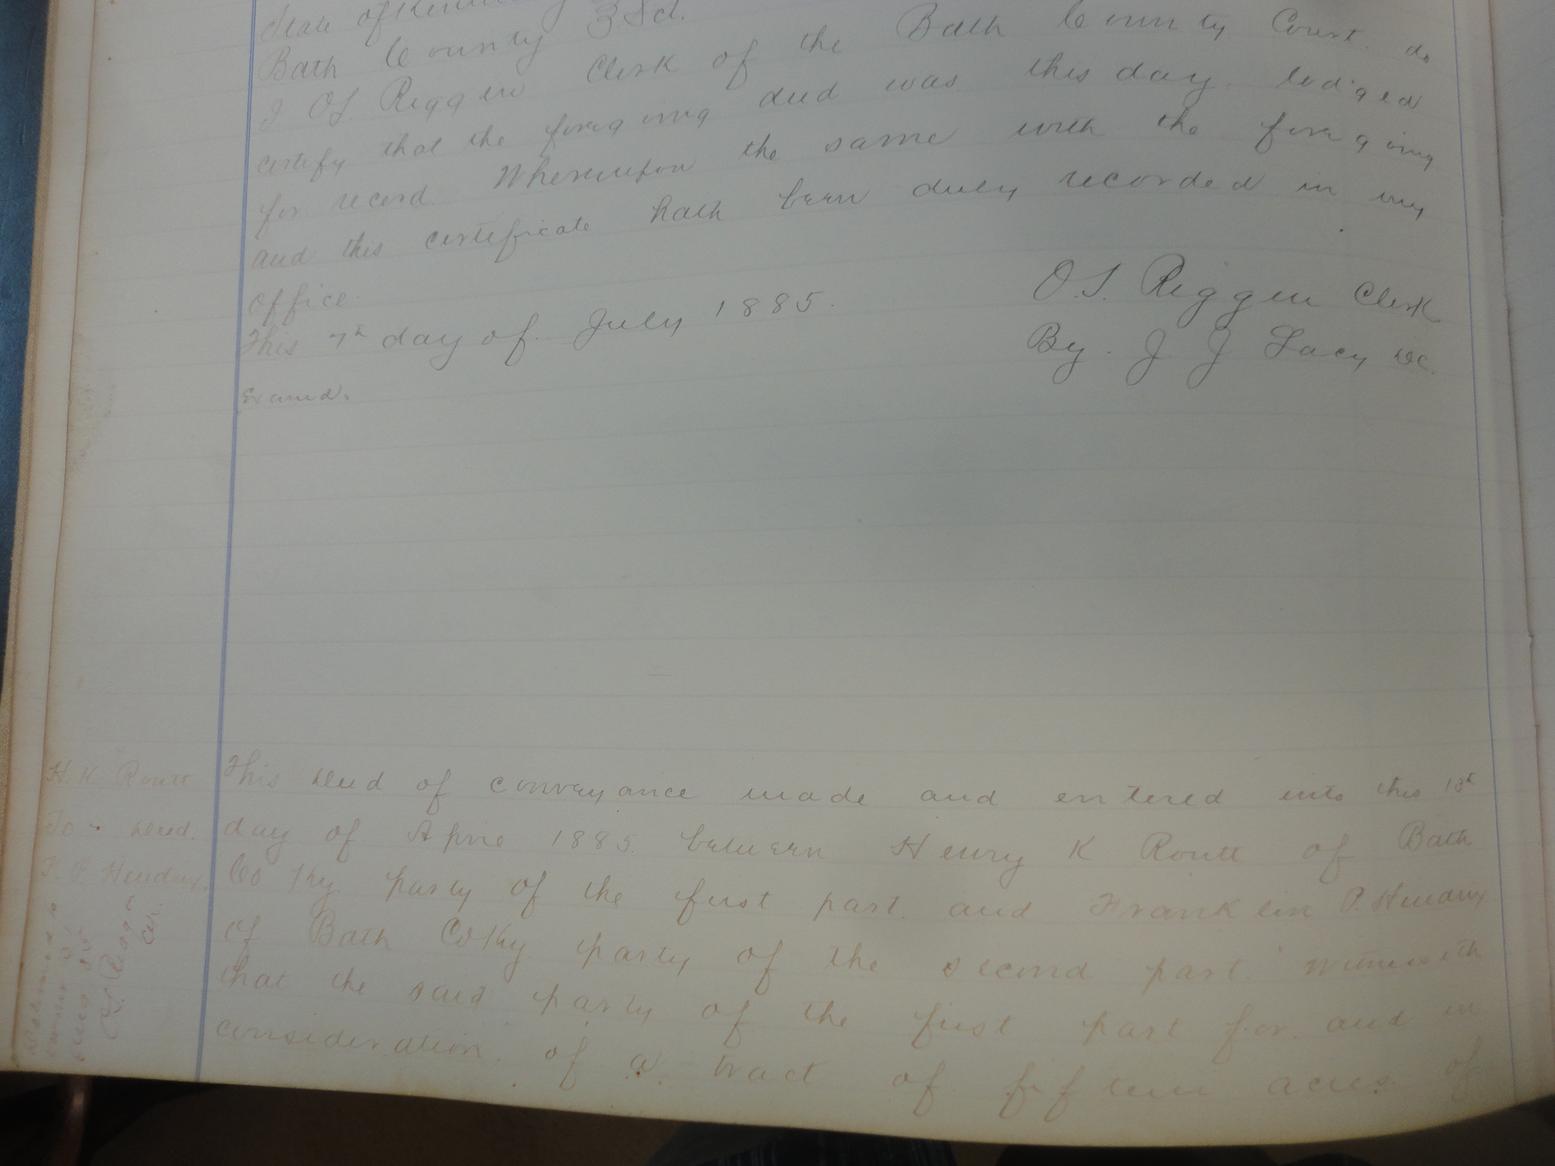 State of Kentucky
Bath County Sct.
I O.S. Riggen Clerk of the Bath County Court do
certify that the foregoing deed was this day lodged
for record Whereupon the same with the foregoing
and this certificate hath been duly recorded in my
office
This 7th day of July 1885.
O.S. Riggen Clerk
By. J J Lacy DC.
Examd.
H. K Routt
To - Deed.
F. P Hendrix
This Deed of conveyance made and entered into this 18th
day of Aprie 1885 between Henry K Routt of Bath
Co Ky party of the first part and Franklin P. Hendrix
of Bath Co Ky party of the second part Witnesseth
that the said party of the first part for and in
consideration of a tract of fifteen acres of